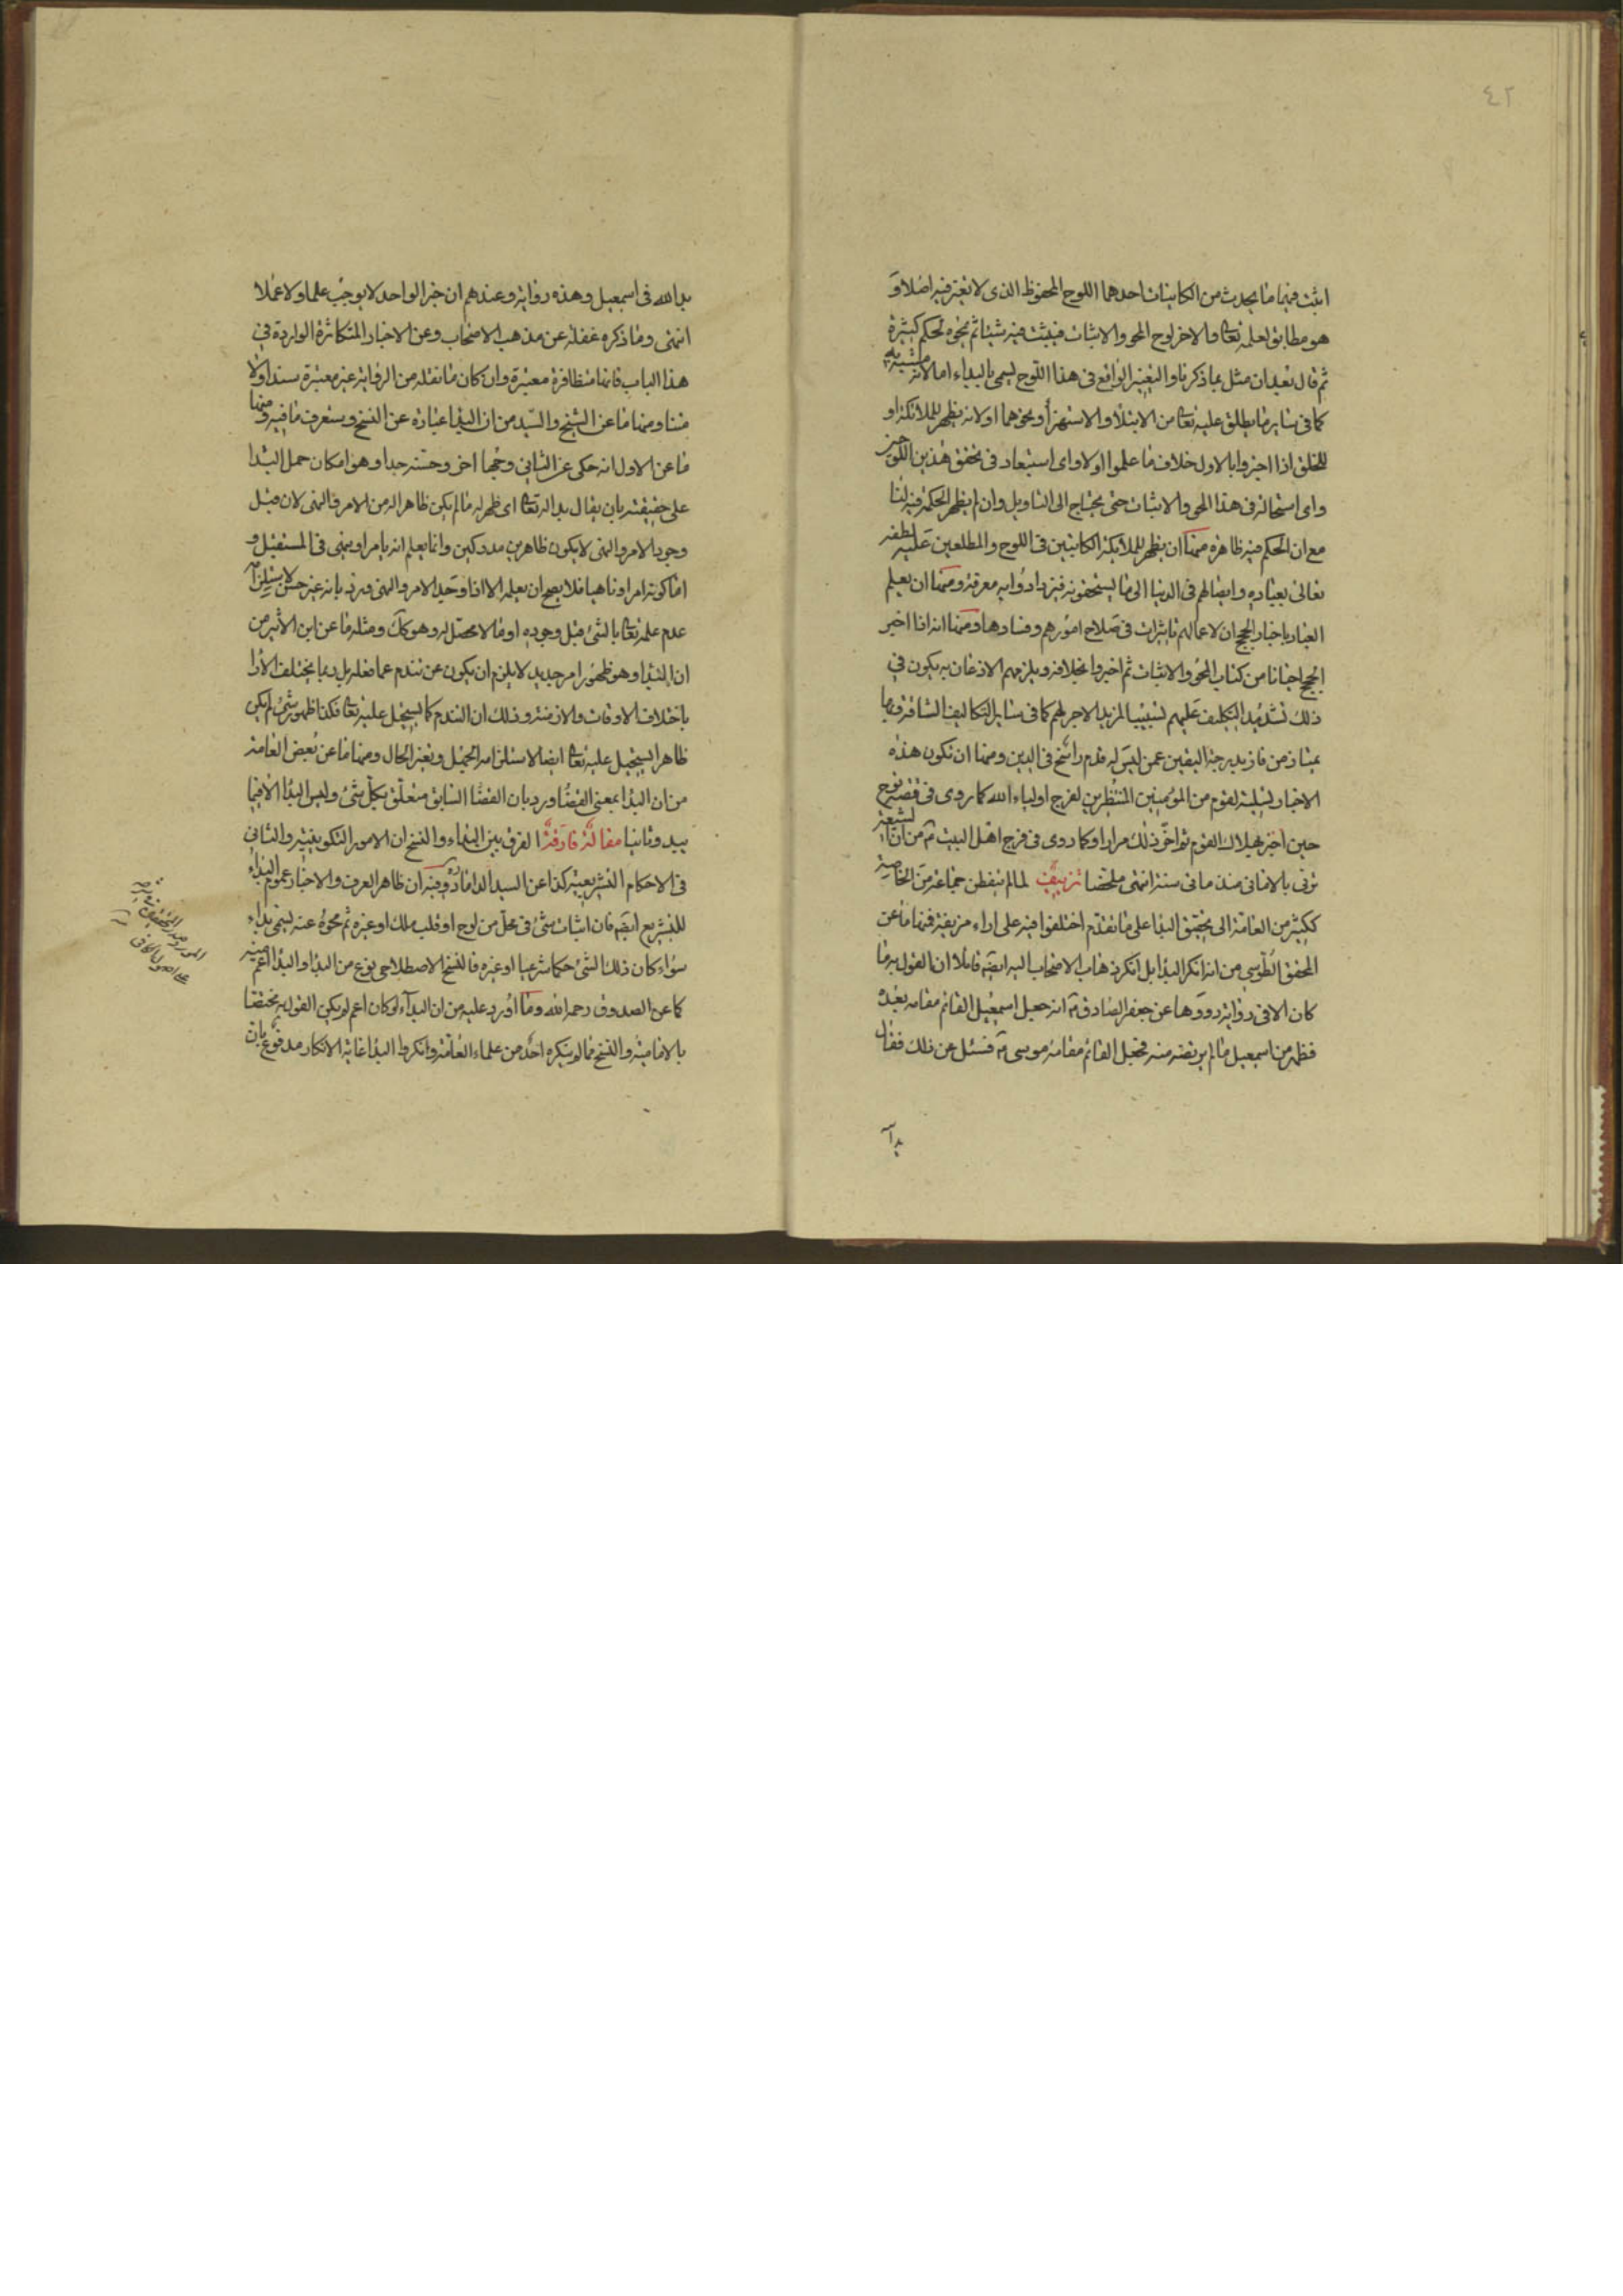 ٤٢
اثبت فيها ما يحدث من الكاينات احدهما اللوح المحفوظ الذى لا تغير فيه اصلا و
هو مطابق لعلمه تعا والاخر لوح المحو والاثبات فيثبت فيه شيئا ثم يمحوه لحكم كثيرة
ثم قال بعد ان مثل بما ذكرنا والتغير الواقع فى هذا اللوح يسمى بالبداء اما لانه مشبه به
كما فى ساير ما يطلق عليه تعا من الابتلا والاستهزأ ونحوهما او لانه يظهر للملائكة او
للخلق اذا اخبروا بالاول خلاف ما علموا اولا واى استبعاد فى تحقق هذين اللوحين
واى استحالة فى هذا المحو والاثبات حتى يحتاج الى التاويل وان لم يظهر الحكمة فيه لنا
مع ان الحكم فيه ظاهرة منها ان يظهر للملائكة الكاتبين فى اللوح والمطلعين عليه لطفه
تعالى بعباده وايصالهم فى الدنيا الى ما يستحقونه فيزدادوا به معرفة ومنها ان يعلم
العباد باخبار الحجج ان لاعمالهم تاثيرات فى صلاح امورهم وفسادها ومنها انه اذا اخبر
الحجج احيانا من كتاب المحو والاثبات ثم اخبروا بخلافه ويلزمهم الاذعان به يكون فى
ذلك تشديد التكليف عليهم تسبيبا لمزيد الاجر لهم كما فى ساير التكاليف الشاقة فبها
يمتاز من فاز بدرجة اليقين عمن ليس له قدم راسخ فى الدين ومنها ان تكون هذه
الاخبار تسلية لقوم من المؤمنين المنتظرين لفرج اولياء الله كما روى فى قصة نوح
حين اخبر بهلاك القوم ثم اخر ذلك مرارا وكما روى فى فرج اهل البيت ع من ان الشيعة
تربى بالامانى منذ ماتى سنة انتهى ملخصا تزييف لما لم يتفطن جماعة من الخاصة
ككثير من العامة الى تحقيق البدا على ما تقدم اختلفوا فيه على اراء مزيفة فمنها ما عن
المحقق الطوسى من انه انكر البدا بل انكر ذهاب الاصحاب اليه ايضا قائلا ان القول به ما
كان الا فى رواية رووها عن جعفر الصادق ع انه جعل اسمعيل القائم مقامه بعده
فظهر من اسمعيل ما لم يرتضه منه فجعل القائم مقامه موسى ع فسئل عن ذلك فقال
بدا
بدا لله فى اسمعيل وهذه رواية وعندهم ان خبر الواحد لا يوجب علما ولا عملا
انتهى وما ذكره غفلة عن مذهب الاصحاب وعن الاخبار المتكاثرة الواردة فى
هذا الباب فانها متظافرة معتبرة وان كان ما نقله من الرواية غير معتبرة سندا ولا
متنا ومنها ما عن الشيخ والسيد من ان البدا عبارة عن النسخ وستعرف ما فيه ومنها
ما عن الاول انه حكى عن الثانى وجها اخر وحسنه جدا وهو امكان حمل البدا
على حقيقته بان يقال بدا له تعا اى ظهر له ما لم يكن ظاهرا له من الامر والنهى لان قبل
وجود الامر والنهى لا يكون ظاهرين مدركين وانما يعلم انه يامر او ينهى فى المستقبل و
اما كونه امرا وناهيا فلا يصح ان يعلمه الا اذا وجد الامر والنهى ورد بانه غير حسن لاستلزامه
عدم علمه تعا بالشئ قبل وجوده او ما لا محصل له وهو كك ومثله ما عن ابن الاثير من
ان البدا وهو ظهور امر جديد لا يلزم ان يكون عن تندم عما فعله بل ربما يختلف الارا
باختلاف الاوقات والازمنة وذلك ان التندم كما يستحيل عليه تعا فكذا ظهور شئ لم يكن
ظاهرا يستحيل عليه تعا ايضا لاستلزامه الجهل وتغير الحال ومنها ما عن بعض العامة
من ان البدا بمعنى القضا ورد بان القضا السابق متعلق بكل شئ وليس البدا الا فيما
يبد وثانيا مقالة فارقة الفرق بين البداء والنسخ ان الامور التكوينية والثانى
فى الاحكام التشريعية كذا عن السيد الداماد ره وفيه ان ظاهر العرف والاخبار عموم البداء
للتشريع ايضا فان اثبات شئ فى محل من لوح او قلب ملك او غيره ثم محوه عنه يسمى بداء
سواء كان ذلك الشئ حكما شرعيا او غيره فالنسخ الاصطلاحى نوع من البدا والبدا اعم منه
كما عن الصدوق رحمه الله وما اورد عليه من ان البداء لو كان اعم لم يكن القول به مختصا
بالامامية والنسخ مما لم ينكره احد من علماء العامة وانكروا البدا غاية الانكار مدفوع بان